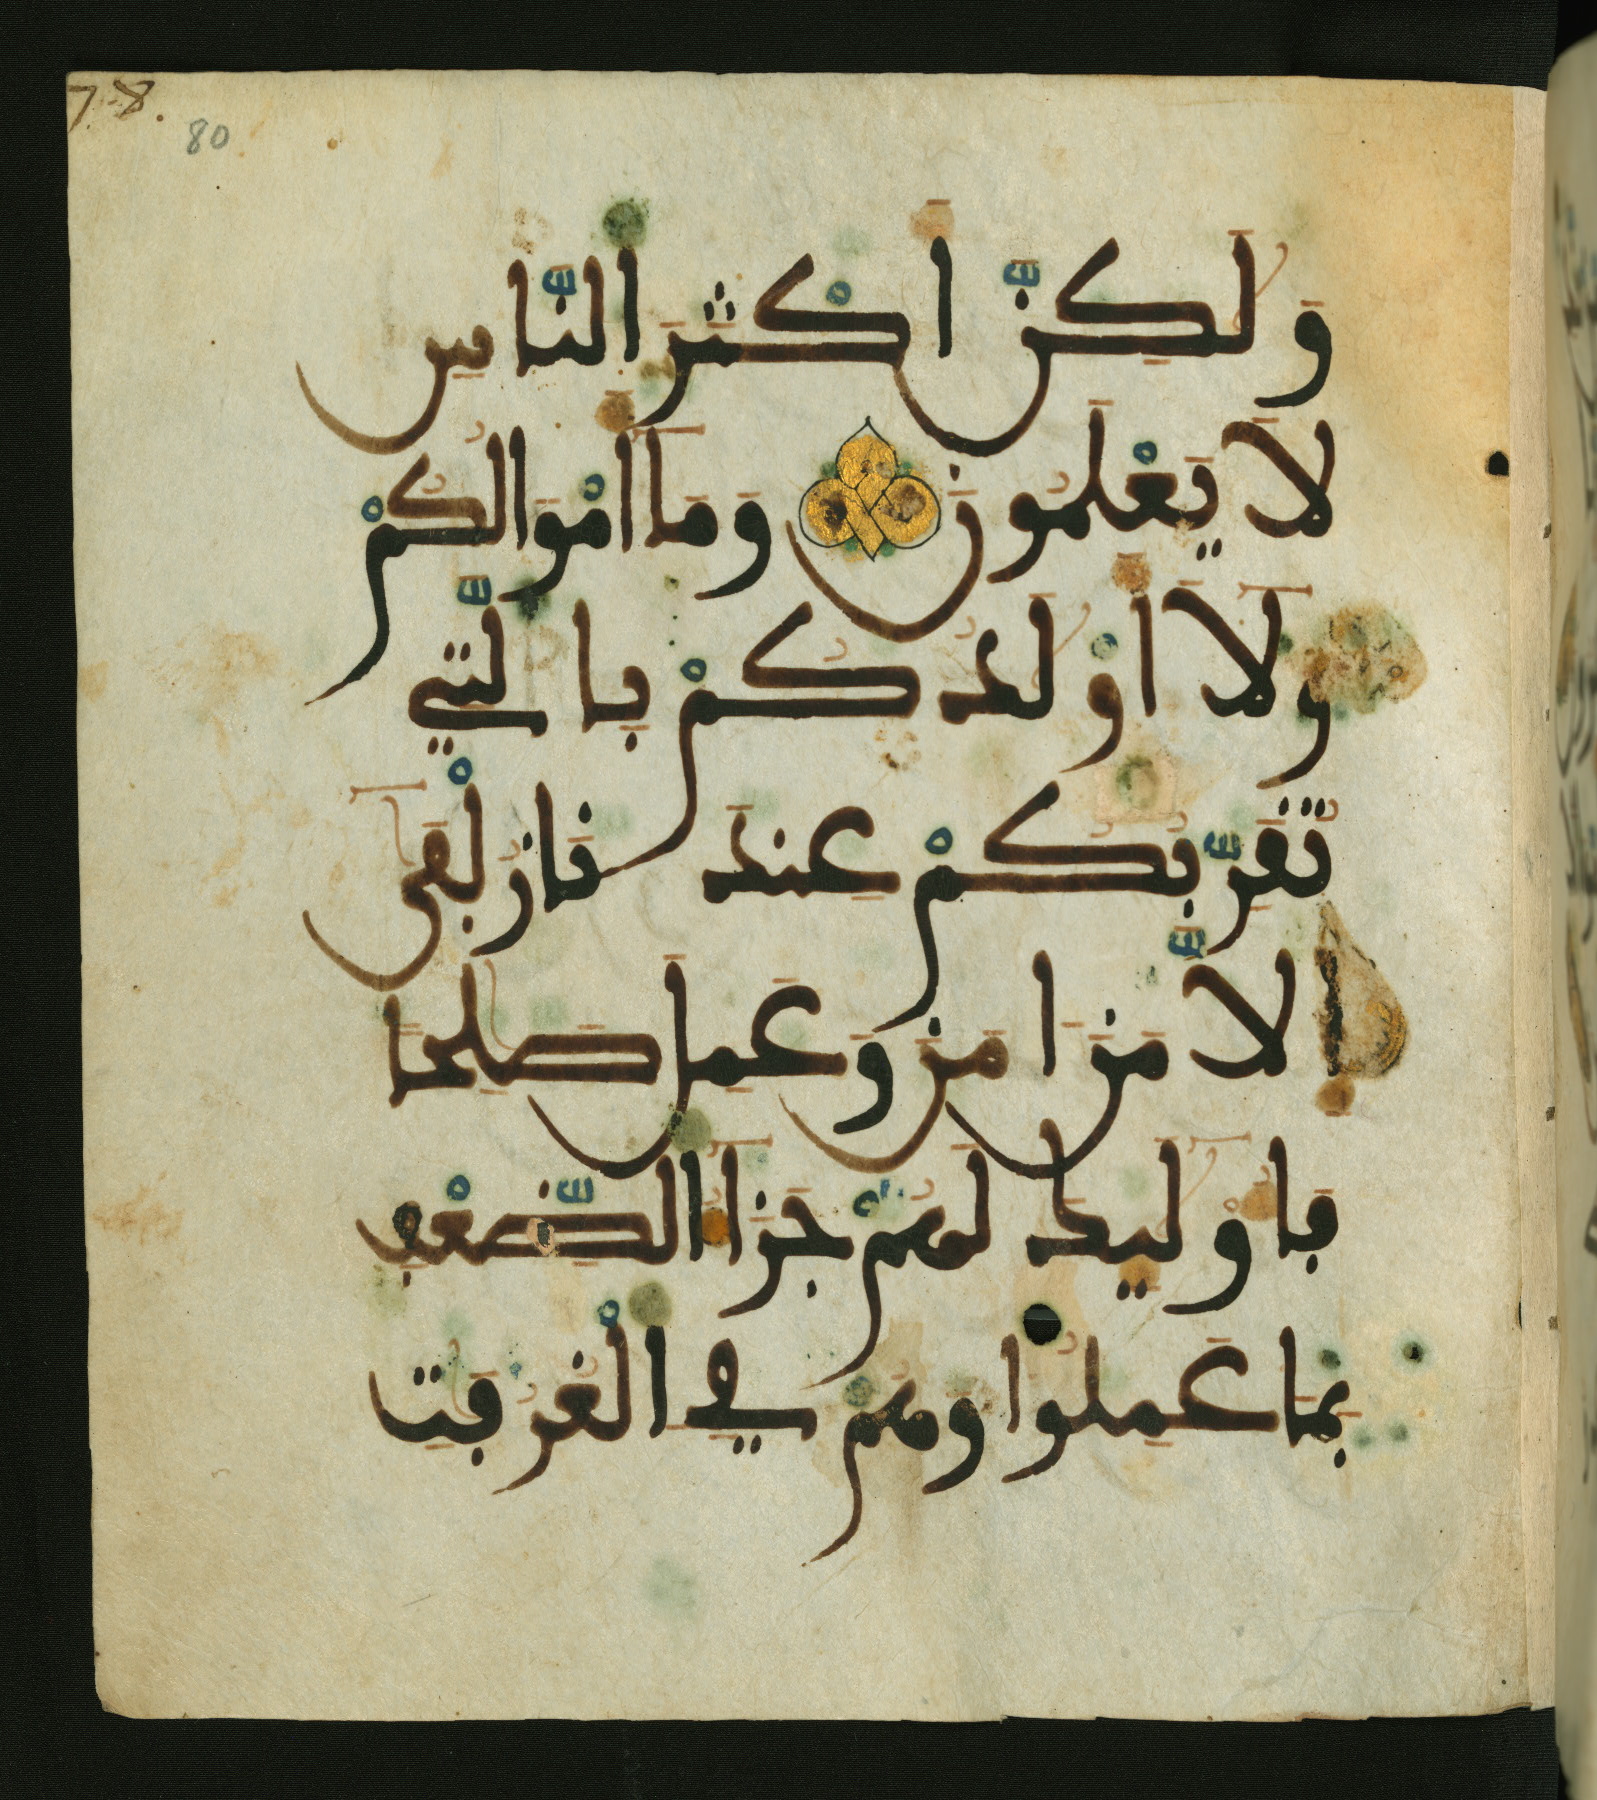 7.8.
80
وَلَكِنَّ أَكْثَرَ النَّاسِ
لَا يَعْلَمُونَ وَمَا أَمْوَالُكُمْ
وَلَا أَوْلَدُكُمْ بِالَّتِي
تُقَرِّبُكُمْ عِندَنَا زُلْفَى
إِلَّا مَنْ ءَامَنَ وَعَمِلَ صَلِحًا
فَأُوْلَئِكَ لَهُمْ جَزَاءُ الضِّعْفِ
بِمَا عَمِلُوا وَهُمْ فِي الْغُرُفَتِ